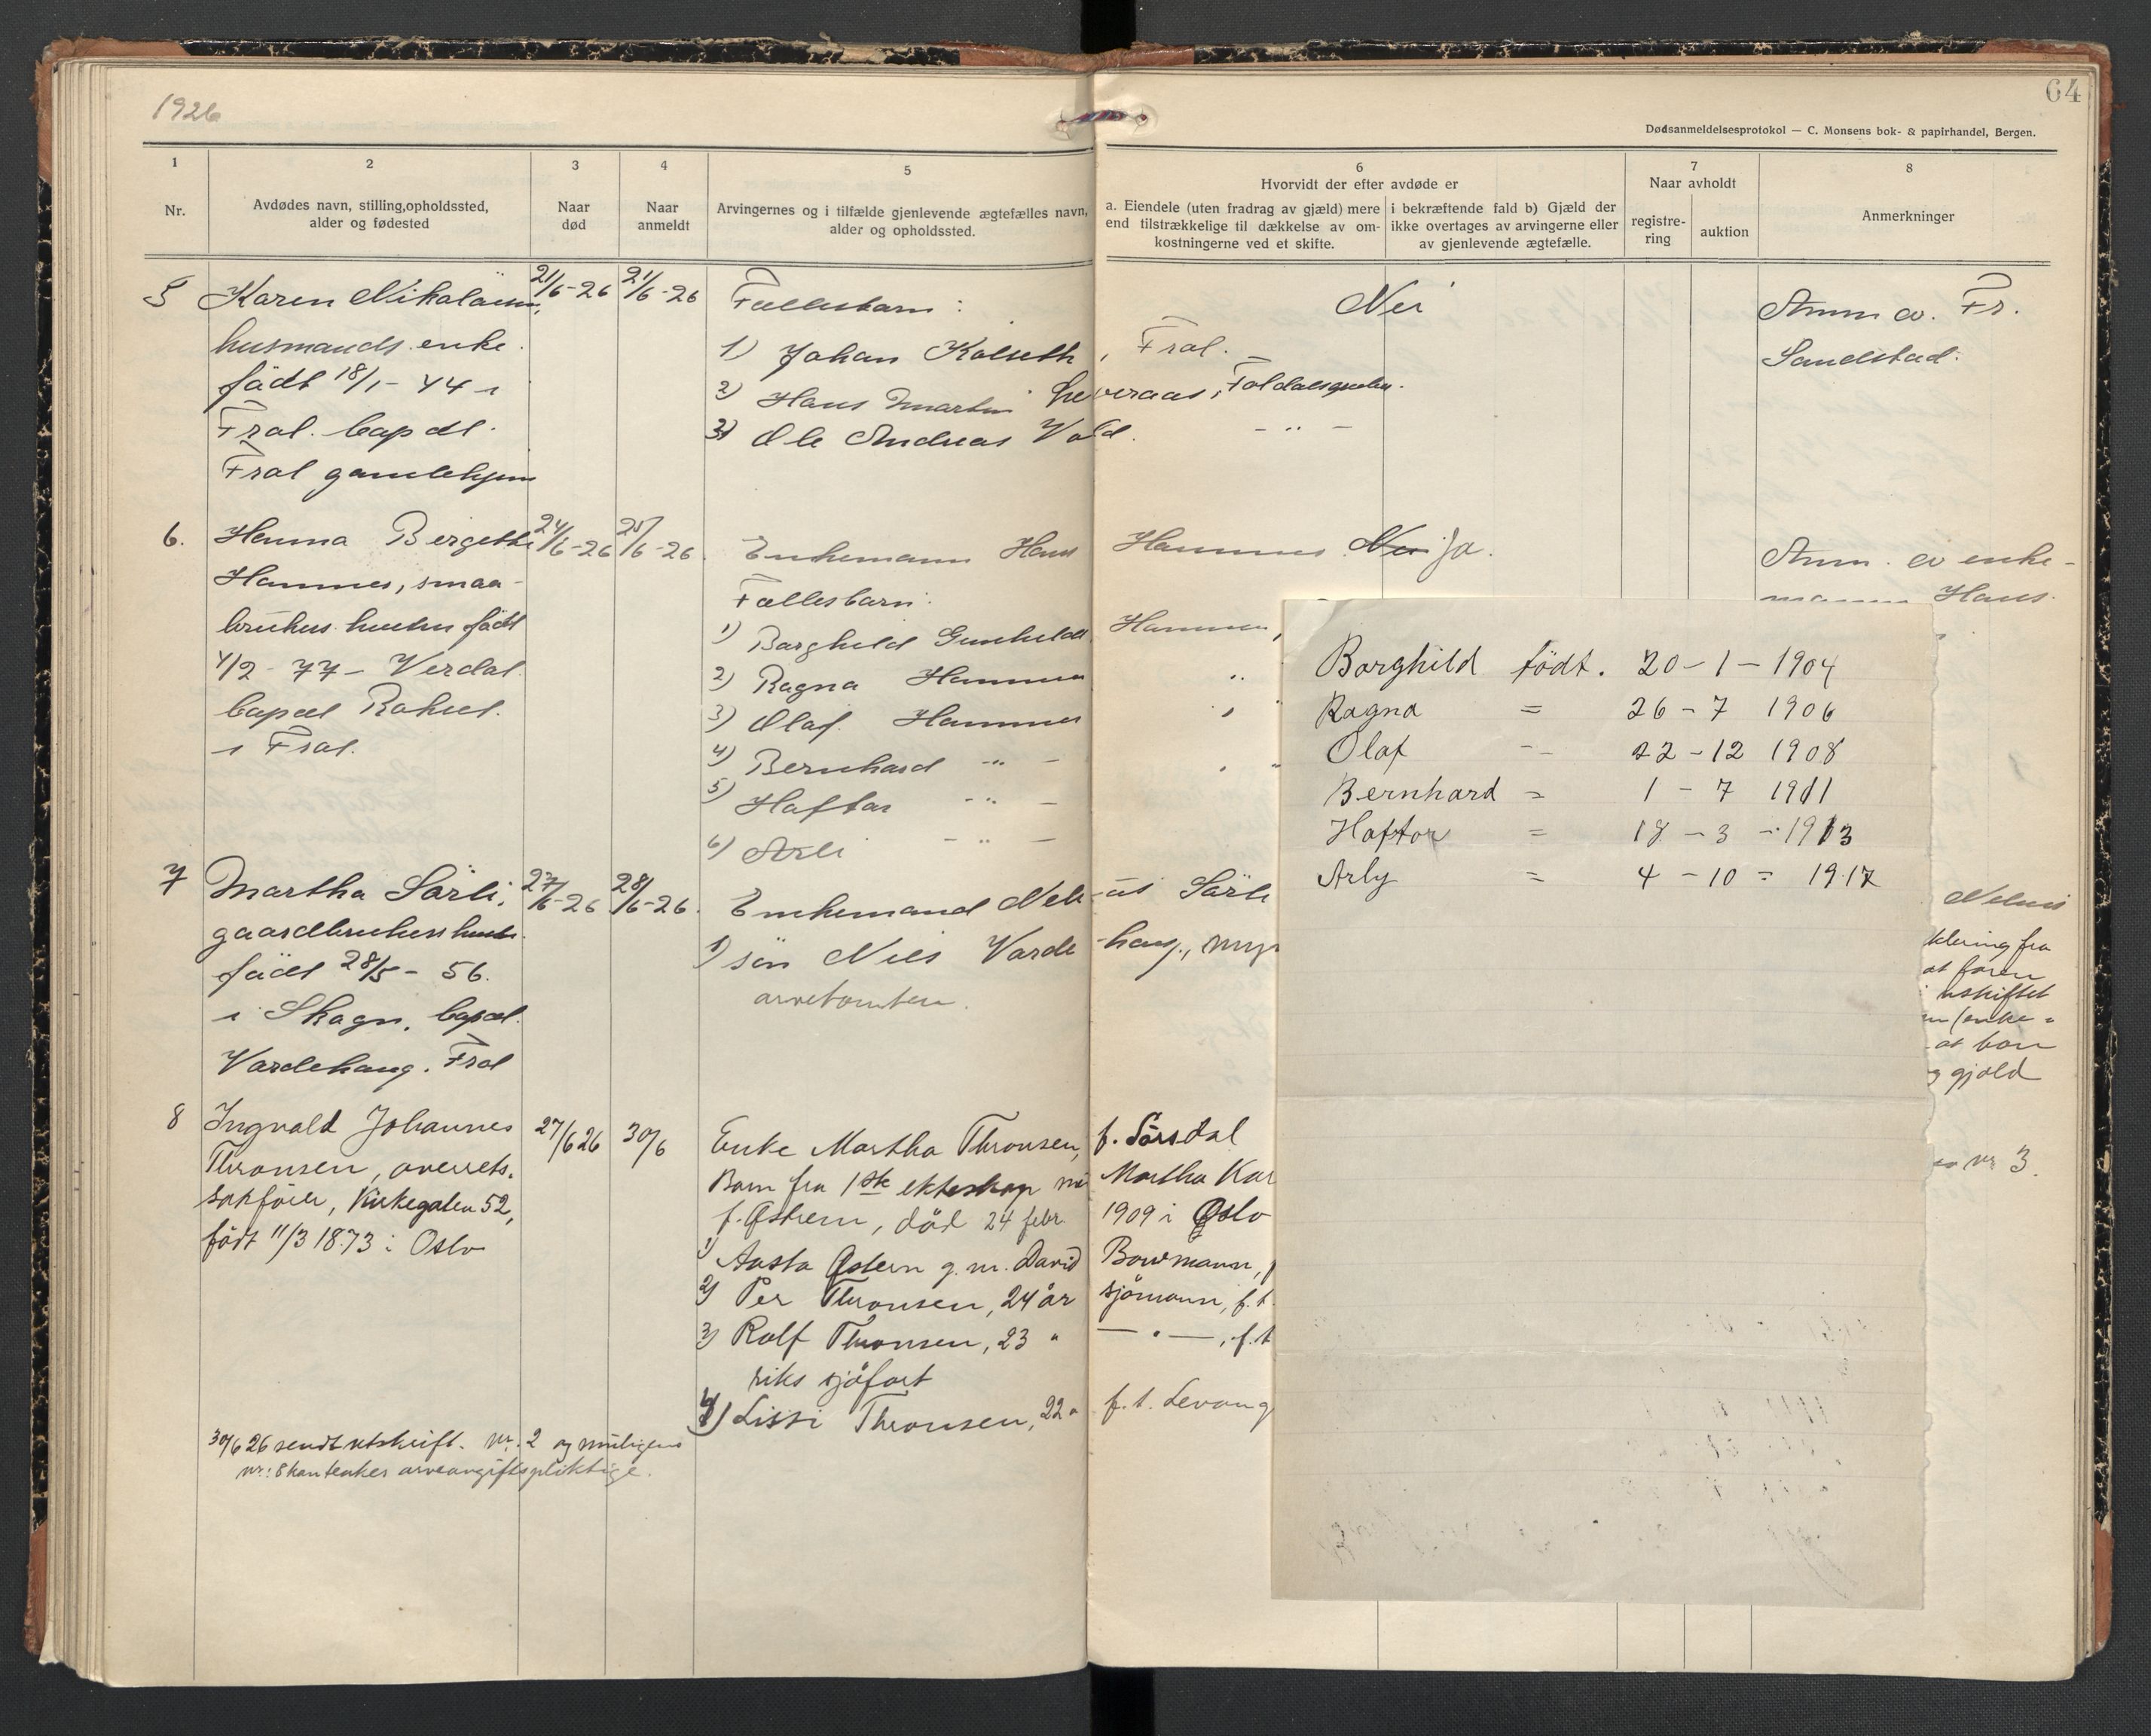 1926
64
Dødsanmeldelsesprotokol — C. Monsens bok- & papirhandel, Bergen.
1
Nr.
2
Avdødes navn, stilling, opholdssted,
alder og fødested
3
Naar
død
4
Naar
anmeldt
5
Arvingernes og i tilfælde gjenlevende ægtefælles navn,
alder og opholdssted.
6
Hvorvidt der efter avdøde er
a. Eiendele (uten fradrag av gjæld) mere
end tilstrækkelige til dækkelse av om-
kostningerne ved et skifte.
i bekræftende fald b) Gjæld der
ikke overtages av arvingerne eller
av gjenlevende ægtefælle.
7
Naar avholdt
registre-
ring
auktion
8
Anmerkninger
5
Karen Nikolaisen,
husmands enke.
födt 18/1 - 44 i
Frol. bopæl.
Frol gamlehjem
21/6-26
21/6-26
Fællesbarn:
1) Johan Kolseth, Frol.
2) Hans Martin
3) Ole Andreas Vold. - " -
Nei
Anm av. Fr.
Sandstad.
6.
Hanna Bergette
Hammer, smaa-
brukers hustru födt
4/2 - 77 - Verdal.
bopæl
i Frol.
24/6-26
25/6-26.
Enkemann Hans Hammer
Fællesbarn:
1) Borghild Gunhilda Hammer,
2) Ragna Hammer "
3) Olaf Hammer "
4) Bernhard - " -
5) Haftor - " -
6) Arli - " -
Nei Ja.
Anm. av enke-
mann Hans
7
Martha Sörli,
gaardbrukers hustru
födt 28/5 - 56.
i Skogn, bopæl.
Vardehaug. Frol
27/6-26
28/6-26.
Enkemand Nelius Sörli
1) sön Nils Vardehaug.,
arvetomten.
Nelius
klæring fra
at faren
uskiftet
enke-
at han
gjæld
8
Ingvald Johannes
Thronsen, overrets-
sakfører, Kirkegaten 52,
födt 11/3 1873 i Oslo
27/6 26
30/6
Enke Martha Thronsen, f. Sörsdal
Barn fra 1ste ekteskap m. Martha Kar
f. Östrem, död 24 febr. 1909 i Oslo
1) Aasta g. m. David Bowmann,
2) Per Thronsen, 24 år sjömann, f. t.
3) Rolf Thronsen, 23 " — " —, f. t
riks sjöfart
4) Lissi Thronsen, 22 " f. t. Levang
nr 3.
30/6 26 sendt utskrift. Nr. 2 og muligens
nr: 8 kan tenkes arveavgiftspliktige.
Borghild födt. 20 - 1 - 1904
Ragna = 26 - 7 1906
Olaf -- 22 - 12 1908
Bernhard = 1 - 7 1911
Haftor = 18 - 3 - 1913
Arly = 4 - 10 = 1917